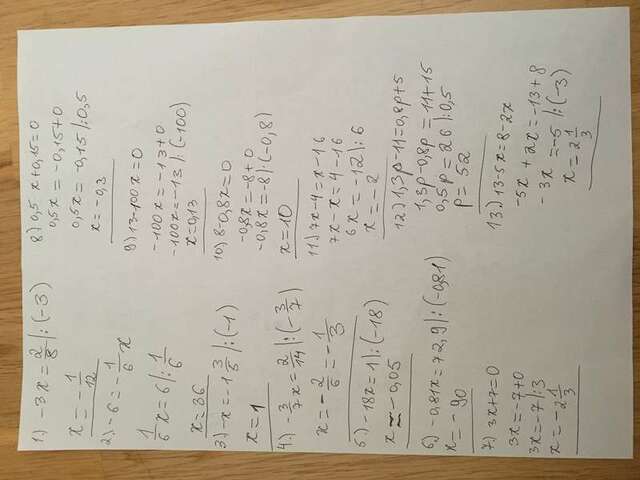 1) -3x = 2/8 |:(-3)
x = -1/12
2) -6 = -1/6 x
1/6 x = 6 |: 1/6
x = 36
3) -x = -1 3/5 |:(-1)
x = 1
4) -3/7 x = 2/14 |:(-3/7)
x = -2/6 = -1/3
5) -18x = 1 |:(-18)
x = -0,05
6) -0,81x = 72,9 |:(-0,81)
x = -90
7) 3x+7=0
3x = -7+0
3x = -7 |:3
x = -2 1/3
8) 0,5x+0,15=0
0,5x = -0,15+0
0,5x = -0,15 |:0,5
x = -0,3
9) 13-100x=0
-100x = -13+0
-100x = -13 |:(-100)
x = 0,13
10) 8-0,8x=0
-0,8x = -8+0
-0,8x = -8 |:(-0,8)
x = 10
11) 7x-4 = x-16
7x-x = 4-16
6x = -12 |:6
x = -2
12) 1,3p-11 = 0,8p+5
1,3p-0,8p = 11+15
0,5p = 26 |:0,5
p = 52
13) 13-5x = 8-2x
-5x+2x = -13+8
-3x = -5 |:(-3)